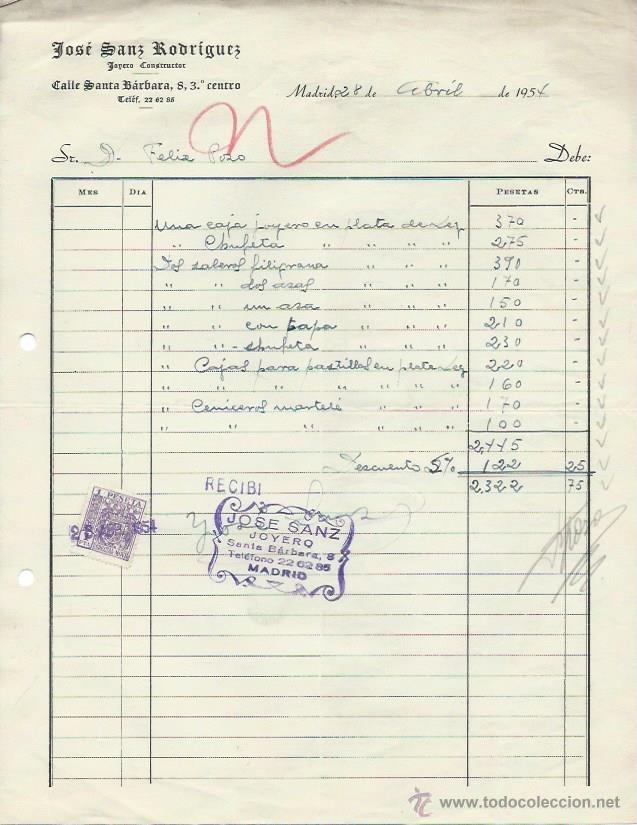 José Sanz Rodríguez
Joyero Constructor
Calle Santa Bárbara, 8, 3.° centro
Teléf. 22 62 85
Madrid 28 de Abril de 1954
Sr. D. Felix Pozo Debe:
MES DIA PESETAS CTS.
Una caja joyero en plata de Ley 370 -
" " Chufeta " " " " 275 -
Dos saleros filigrana " " " 390 -
" " dos asas " " " 170 -
" " un asa " " " 150 -
" " con tapa " " " 210 -
" " - chufeta " " " 230 -
" Cajas para pastillas en plata Ley 220 -
" " " " " " " 160 -
" Ceniceros martelé " " " 170 -
" " " " " " 100 -
2,445
Descuento 5% 122 25
2,322 75
RECIBI
1 PESETA
JOSE SANZ
JOYERO
Santa Bárbara, 8
Teléfono 22 62 85
MADRID
todocoleccion
www.todocoleccion.net